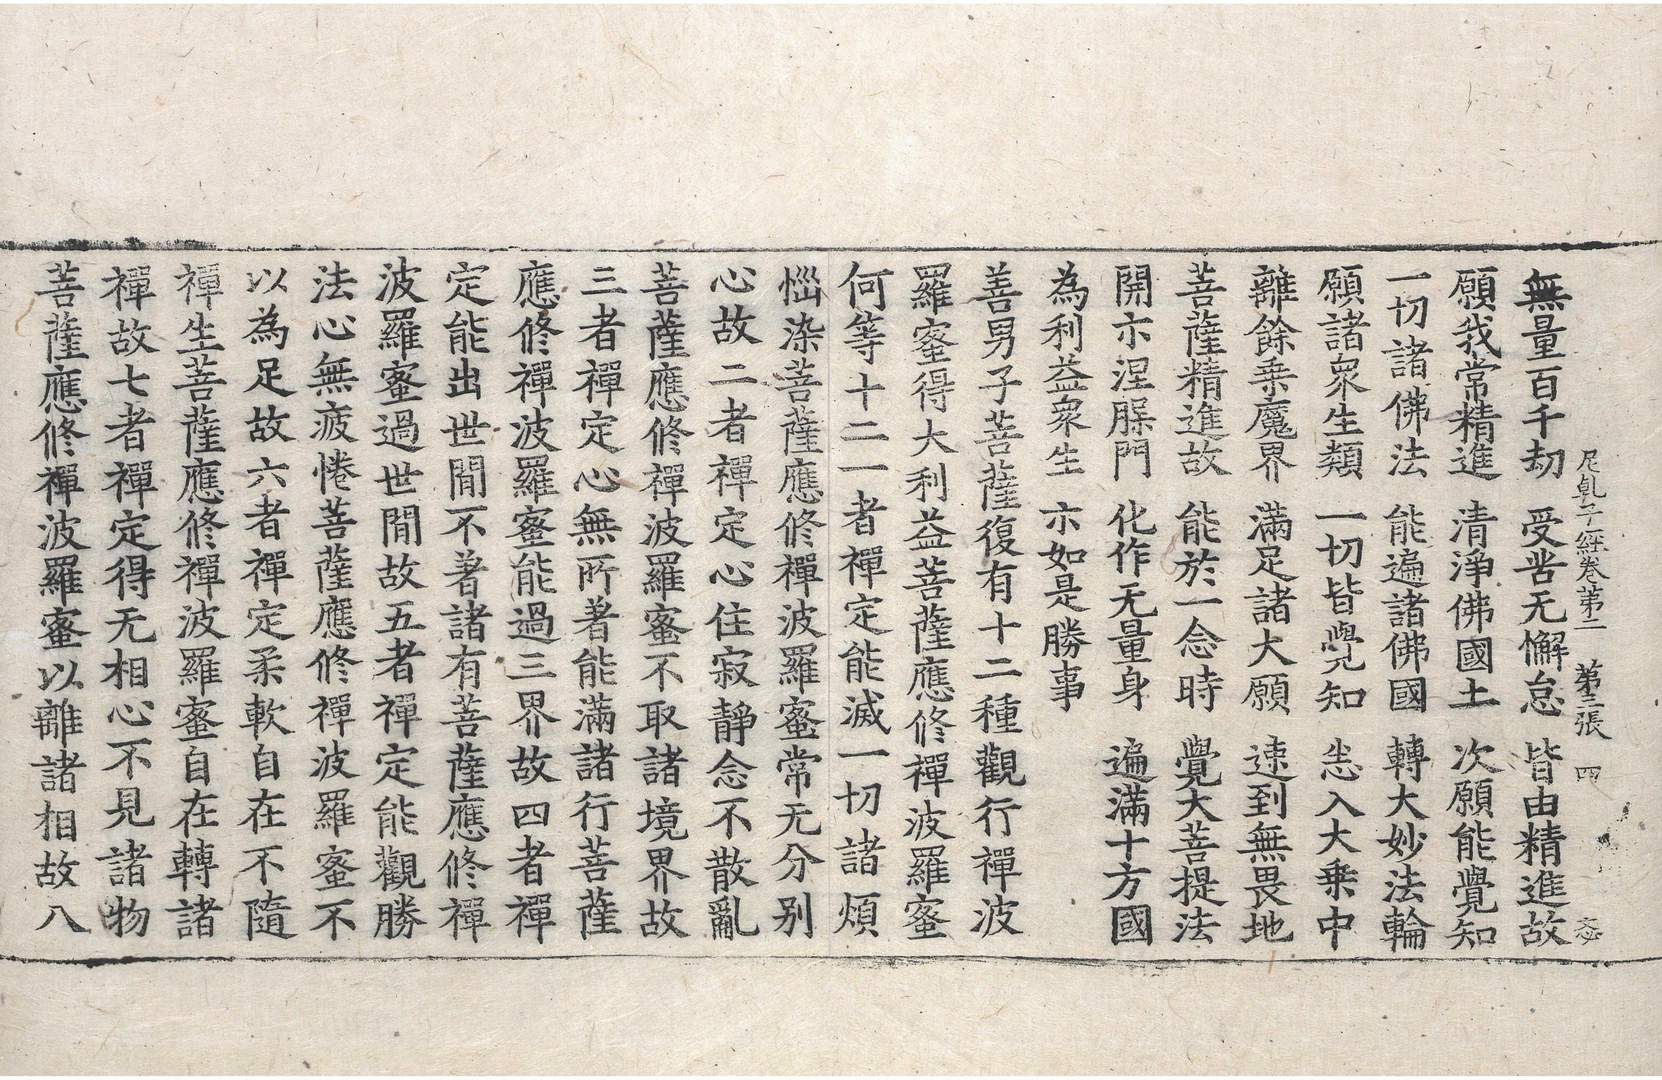 尼乹子経卷苐二　苐三張　四
無量百千劫　受苦无懈怠　皆由精進故
願我常精進　清淨佛國土　次願能覺知
一切諸佛法　能遍諸佛國　轉大妙法輪
願諸衆生類　一切皆覺知　悉入大乗中
離餘乗魔界　滿足諸大願　速到無畏地
菩薩精進故　能於一念時　覺大菩提法
開示涅槃門　化作无量身　遍滿十方國
為利益衆生　示如是勝事
善男子菩薩復有十二種觀行禪波
羅蜜得大利益菩薩應修禪波羅蜜
何等十二一者禪定能滅一切諸煩
惱染菩薩應修禪波羅蜜常无分别
心故二者禪定心住寂靜念不散亂
菩薩應修禪波羅蜜不取諸境界故
三者禪定心無所著能滿諸行菩薩
應修禪波羅蜜能過三界故四者禪
定能出世間不著諸有菩薩應修禪
波羅蜜過世間故五者禪定能觀勝
法心無疲惓菩薩應修禪波羅蜜不
以為足故六者禪定柔軟自在不隨
禪生菩薩應修禪波羅蜜自在轉諸
禪故七者禪定得无相心不見諸物
菩薩應修禪波羅蜜以離諸相故八